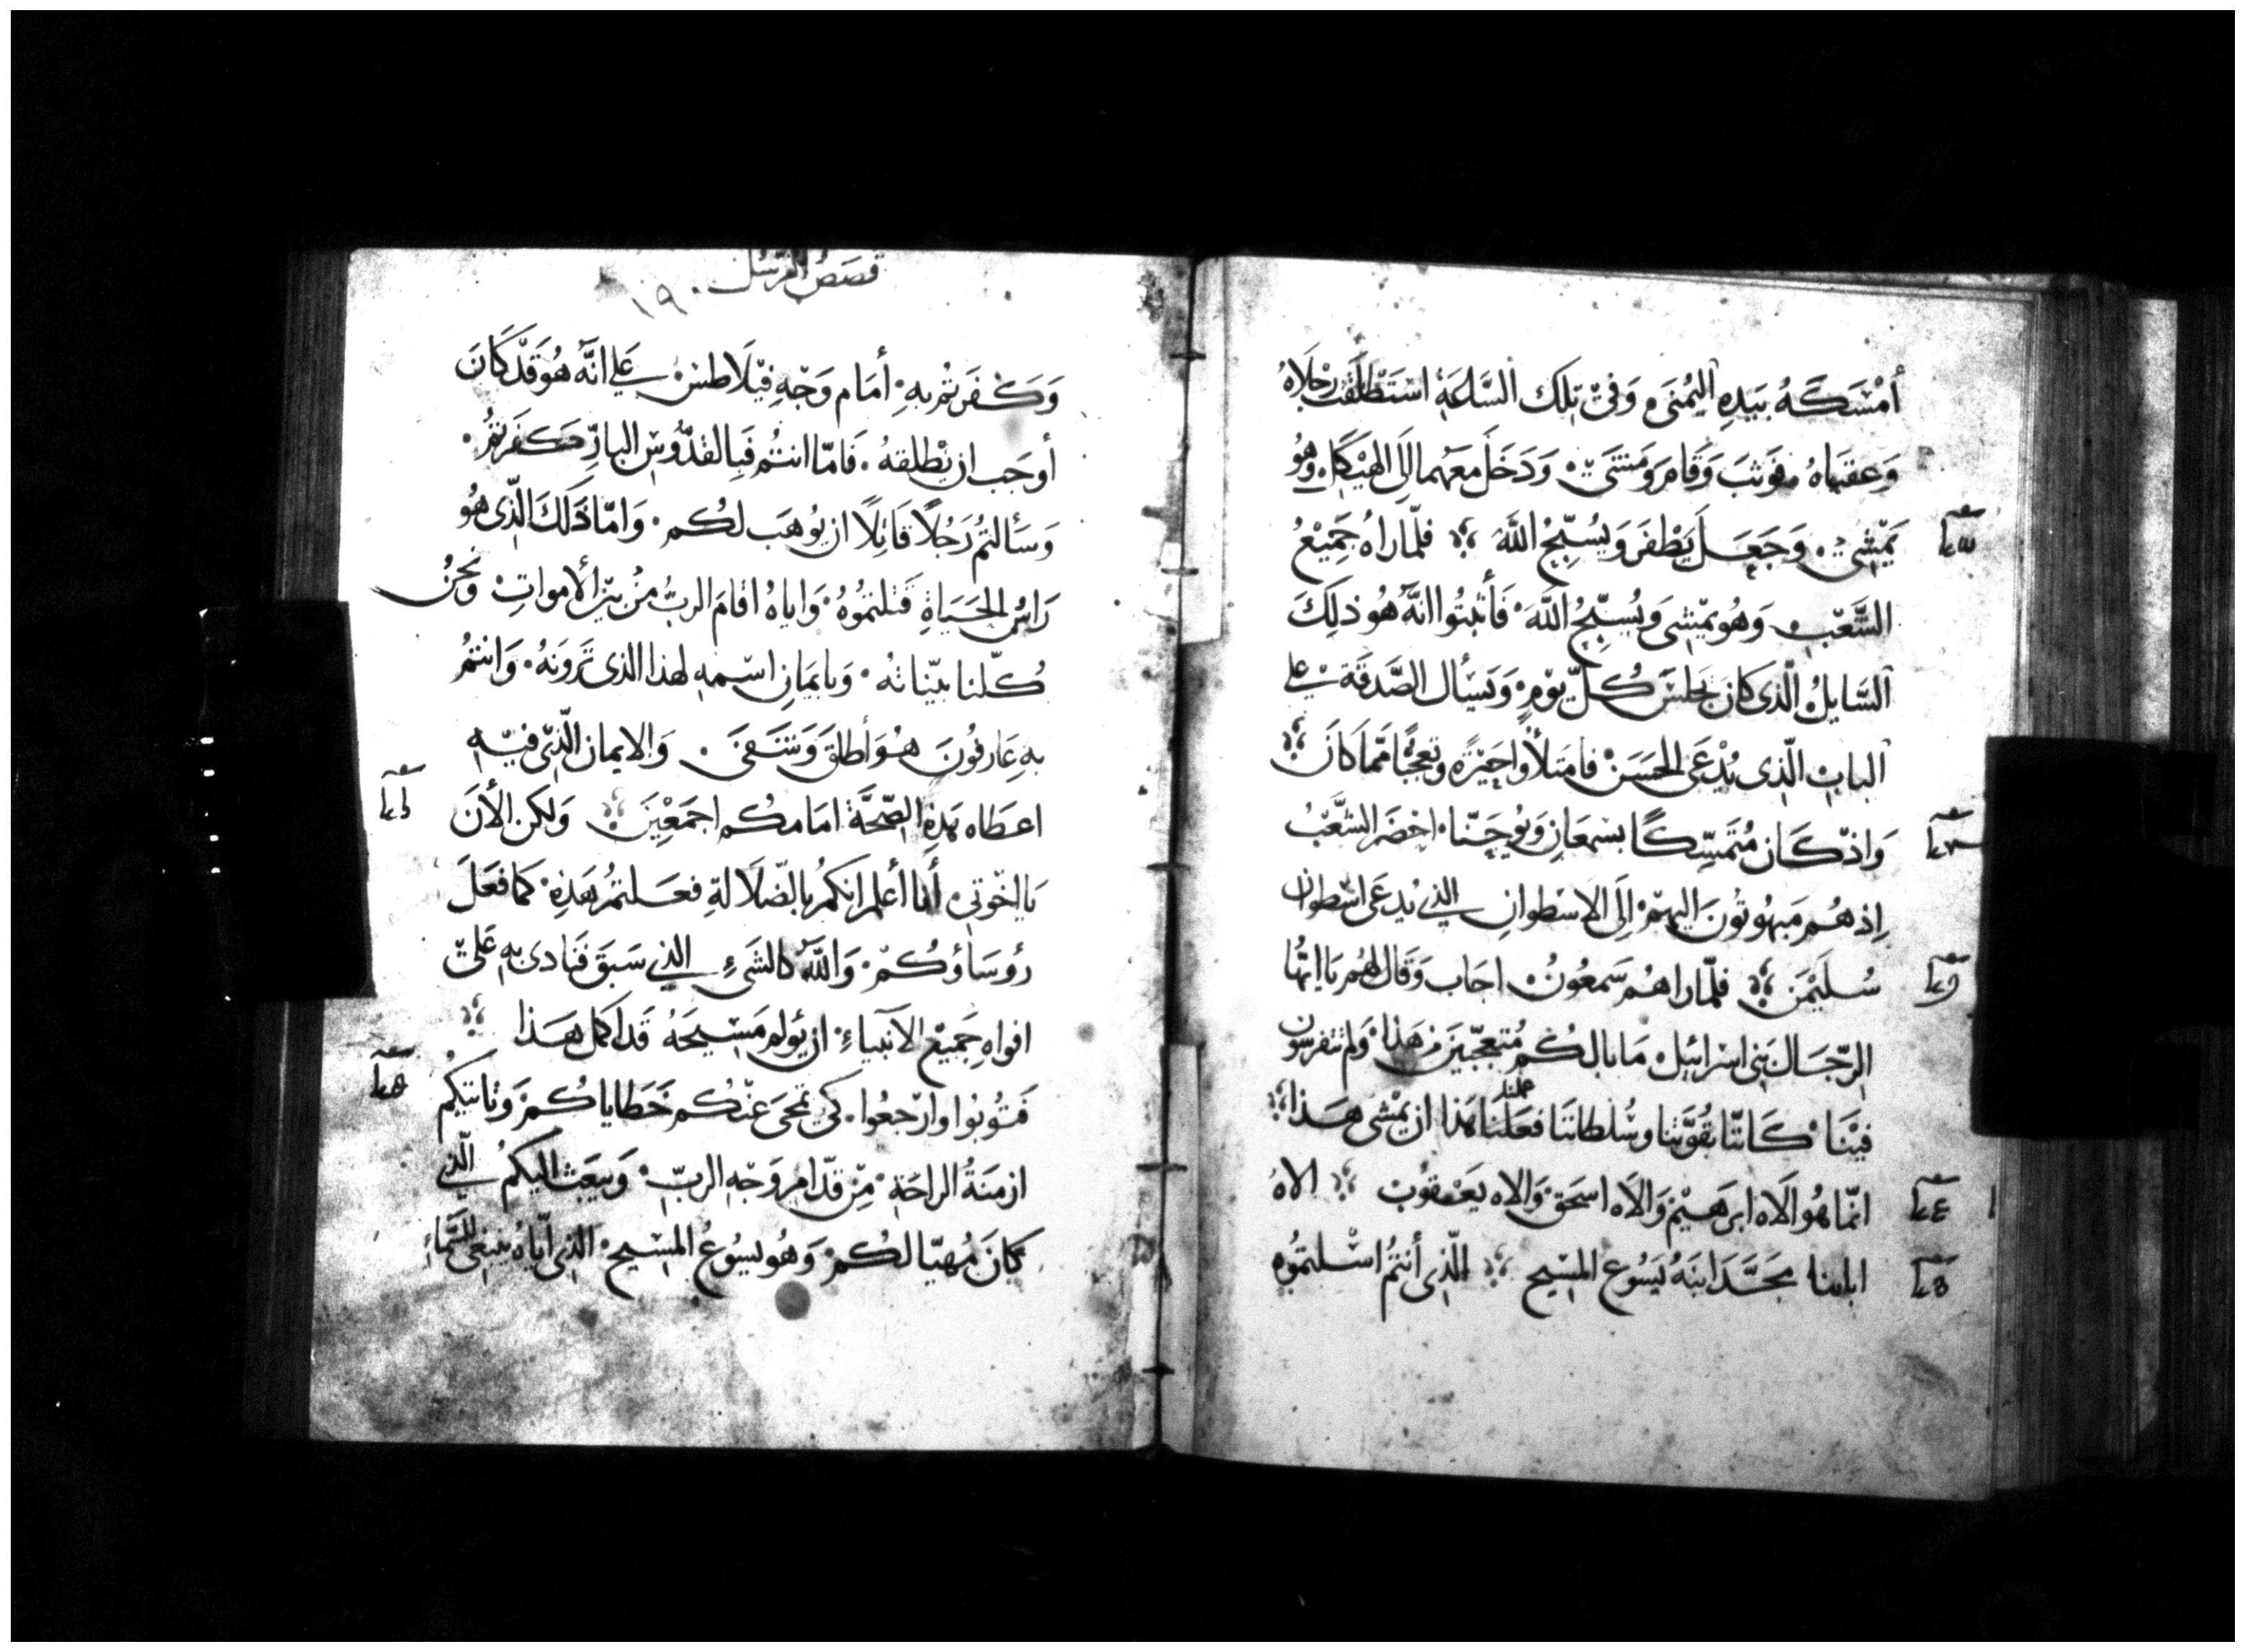 أَمْسَكَهُ بيَدِهِ اليُمْنَى وَفِيْ تِلك السَّاعَةِ اسْتَطْلَقَتْ رِجْلَاهُ
وَعقبَاهُ فوَثبَ وَقَامَ وَمَشَىَ وَدَخَلَ مَعَهما الَى الهَيْكَلِ وَهُو
يَمْشِي وَجَعَلَ يَطْفرَ وَيُسَبِّحُ اللَّهَ فلمّا راهُ جَمِيْعُ
الشَّعْبِ وَهُو يَمْشِى وَيُسَبِّحُ اللَّهَ فَأثبتُوا انَّهُ هُو ذلِكَ
السَّايلُ الّذى كانَ يَجْلسُ كُلّ يَوْمٍ وَيَسْأل الصَّدَقَةَ على
البابِ الّذِى يُدْعَى الحَسَنْ فامتَلأُوا حَيْرَةً وتعجّبًا مَمّا كَانَ
وَاذْ كَان مُتَمَسِّكًا بسْمعَانَ وَيُوحَنّا احْضَرَ الشَّعْبُ
اِذ هُم مَبهُوتُونَ اليهِمْ اِلَى الاسْطوانِ الذي يُدعَى اسْطوان
سُليْمَنَ فلمّا راهُم سَمعُونْ اجَاب وَقَال لهُم يَا ايّهَا
الرِّجَال بَنِى اسْرائيل مَا بالكُم مُتعجّبيَن مِن هَذا وَلم تتفرسُون
فيْنَا كَانّنا بقُوَّتِنا وسُلطاننَا فعَلنَا هَذا ان يَمْشى هَذا
انّما هُو الَاه ابرَهيْمَ وَالَاه اسحَق وَالاه يَعْقوُبْ الاهُ
اباينا مَجَّدَ ابنَهُ يَسُوع المسْيح الّذِى أَنتُمْ اسْلمتُموُه
قصَصُ الرسُل ١٩
وَكفَرتُم بهِ أمَام وَجْهِ فيْلَاطسْ على انَّهُ هُوَ قَدْ كَانَ
أوجَب ان يُطلقهُ فَامّا انتُم فَبِالقدُّوسِ البارّ كفَرتمُ
وَسَألتُم رَجُلًا قَاتلًا ان يُوهَب لكُم وَامّا ذَلكَ الّذى هُو
رَاسُ الحَيَاةِ قَتلتمُوُهُ وَاياهُ اقامَ الربُّ مِنْ بَيْنِ الأمواتِ وَنحْنُ
كُلّنا بيّناتهُ وَبايمَانِ اسْمهِ لهَذا الذى تَرَونَهُ وَانتُمْ
بهِ عَارفُونَ هُوَ أطلقَ وَشَفَىَ وَالايمان الّذِيْ فيْهِ
اعطَاه هَذِهِ الصّحَّةَ امَامكُم اجمَعْينَ وَلكن الأنَ
يَا اخْوتى أنا أعْلم انكمُ بالضّلالةِ فعَلتمُ هَذهِ كمَا فعَلَ
رُؤسَاؤكُمْ وَاللَّهُ كالشىءِ الذي سَبَقَ فنَادى بهِ عَلىَ
افواهِ جَمِيْع الانبياءِ ان يُؤلمَ مَسْيحَهُ قَد اكمَل هَذا
فتوُبُوا وارْجعُوا كَى تمحَى عَنْكُم خَطَاياكُمْ وَتاتيَكمْ
ازمنَةُ الراحَةِ مِنْ قدّامِ وَجْهِ الربّ وَيبعَث اليكمُ الّذي
كَانَ مُهيّا لكُمْ وَهُو يسُوعُ المسْيح الذى ايّاهُ ينبغى للسَّماءِ